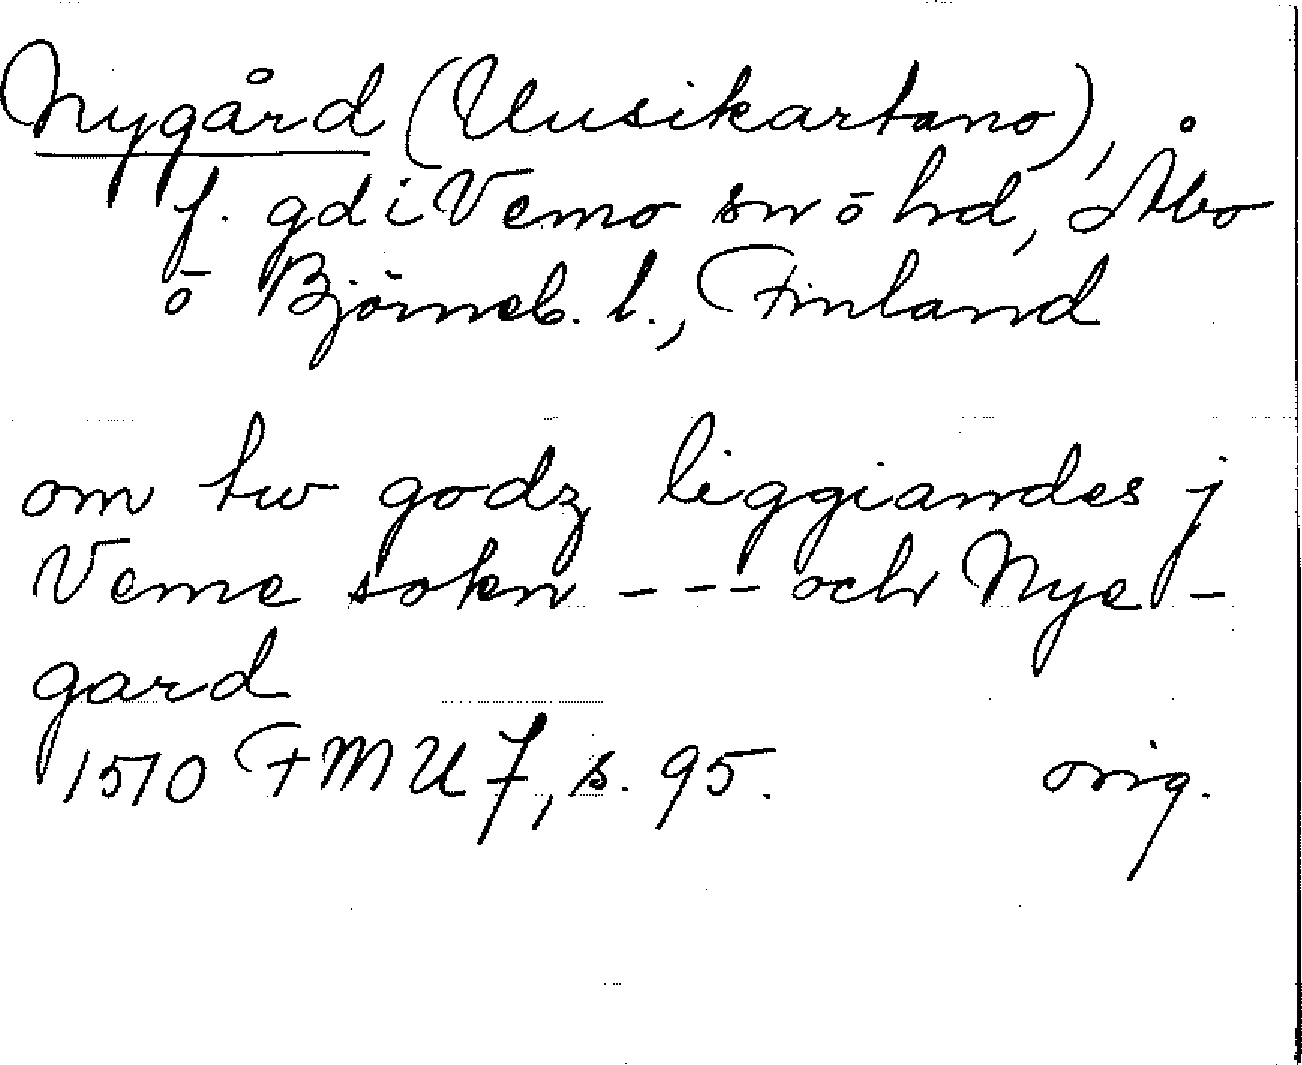 Nygård (Uusikartano),
f. gd i Vemo sn ō hd, Åbo
ō Björneb. l., Finland
om tw godz liggiandes j
Veme sokn --- och Nye-
gard
1510 FMU 7, s. 95. orig.